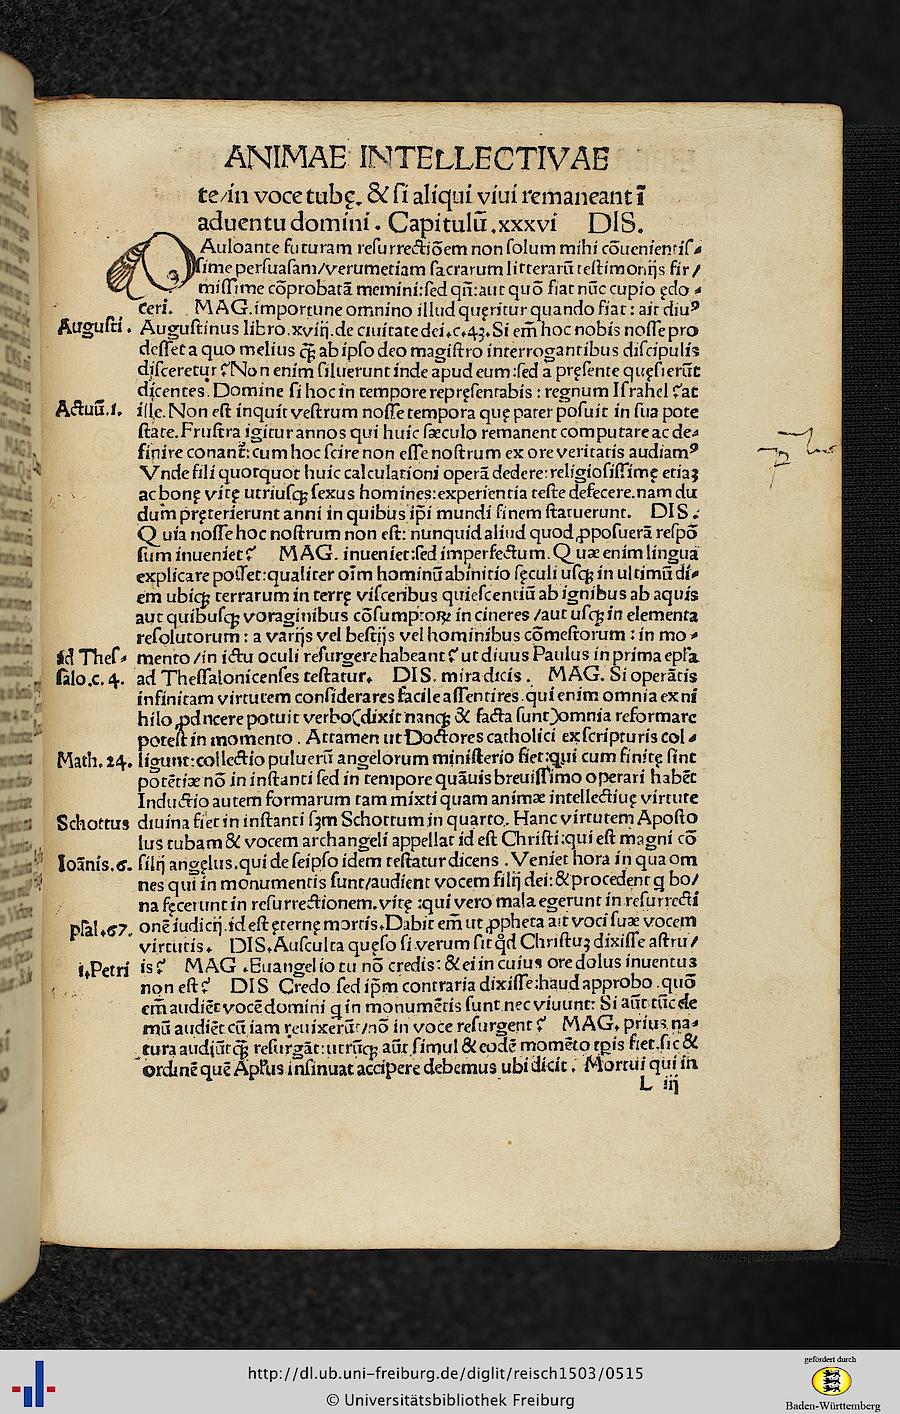 ANIMAE INTELLECTIVAE
te/in voce tubę. & ſi aliqui vivi remaneant ī
adventu domini . Capitulū .xxxvi DIS.
Auloante futuram reſurrectiōem non ſolum mihi cōvenientiſ-
ſime perſuaſam/verumetiam ſacrarum litterarū teſtimonijs fir/
miſſime cōprobatā memini:ſed qñ:aut quō fiat nūc cupio ędo-
ceri. MAG.importune omnino illud quęritur quando fiat: ait diuꝰ
Auguſti. Auguſtinus libro.xviij.de ciuitate dei.c.43.Si em̄ hoc nobis noſſe pro
deſſet a quo melius q̄ꝫ ab ipſo deo magiſtro interrogantibus diſcipulis
diſceretur? Non enim ſiluerunt inde apud eum:ſed a pręſente quęſierūt
dicentes. Domine ſi hoc in tempore repręſentabis: regnum Iſrahel? at
Actuū.1. ille. Non eſt inquit veſtrum noſſe tempora quę pater poſuit in ſua pote
ſtate. Fruſtra igitur annos qui huic ſæculo remanent computare ac de-
finire conant᷑: cum hoc ſcire non eſſe noſtrum ex ore veritatis audiamꝰ
Vnde fili quotquot huic calculationi operā dedere: religioſiſſimę etiaꝫ
ac bonę vitę utriuſqꝫ ſexus homines: experientia teſte defecere. nam du
dum pręterierunt anni in quibus ip̄i mundi finem ſtatuerunt. DIS.
Quia noſſe hoc noſtrum non eſt: nunquid aliud quod ꝓpoſuerā reſpō
ſum inueniet? MAG. inueniet:ſed imperfectum. Quæ enim lingua
explicare poſſet: qualiter oīm hominū ab initio ſęculi uſqꝫ in ultimū di-
em ubiqꝫ terrarum in terrę viſceribus quieſcentiū ab ignibus ab aquis
aut quibuſqꝫ voraginibus cōſumptoꝝ in cineres / aut uſqꝫ in elementa
reſolutorum: a varijs vel beſtijs vel hominibus cōmeſtorum: in mo-
ad Theſ- mento/in ictu oculi reſurgere habeant? ut diuus Paulus in prima ep̄ſa
ſalo.c.4. ad Theſſalonicenſes teſtatur. DIS. mira dicis. MAG. Si operātis
infinitam virtutem conſiderares facile aſſentires. qui enim omnia ex ni
hilo ꝓducere potuit verbo (dixit nanqꝫ & facta ſunt) omnia reformare
poteſt in momento. Attamen ut Doctores catholici ex ſcripturis col-
Math.24. ligunt: collectio puluerū angelorum miniſterio fiet: qui cum finitę ſint
potētiæ nō in inſtanti ſed in tempore quāuis breuiſſimo operari habēt
Inductio autem formarum tam mixti quam animæ intellectiuę virtute
Schottus diuina fiet in inſtanti ſꝫm Schottum in quarto. Hanc virtutem Apoſto
lus tubam & vocem archangeli appellat id eſt Chriſti: qui eſt magni cō
Ioānis.6. ſilij angęlus. qui de ſeipſo idem teſtatur dicens. Veniet hora in qua om
nes qui in monumentis ſunt/audient vocem filij dei: & procedent q bo/
na fęcerunt in reſurrectionem. vitę: qui vero mala egerunt in reſurrecti
pſal.67. onē iudicij. id eſt ęternę mortis. Dabit em̄ ut ꝓpheta ait voci ſuæ vocem
virtutis. DIS. Auſculta quęſo ſi verum ſit qd̄ Chriſtuꝫ dixiſſe aſtru/
1.Petri is? MAG. Euangelio tu nō credis: & ei in cuius ore dolus inuentus
non eſt? DIS Credo. ſed ip̄m contraria dixiſſe: haud approbo. quō
em̄ audiēt vocē domini q in monumētis ſunt nec viuunt: Si aūt tūc de
mū audiēt cū iam reuixerūt/nō in voce reſurgent? MAG. prius na-
tura audiūt q̄ꝫ reſurgāt: utrūqꝫ aūt ſimul & eodē momēto tp̄is fiet. ſic &
ordinē quē Ap̄lus inſinuat accipere debemus ubi dicit. Mortui qui in
L iij
http://dl.ub.uni-freiburg.de/diglit/reisch1503/0515
© Universitätsbibliothek Freiburg
gefördert durch
Baden-Württemberg